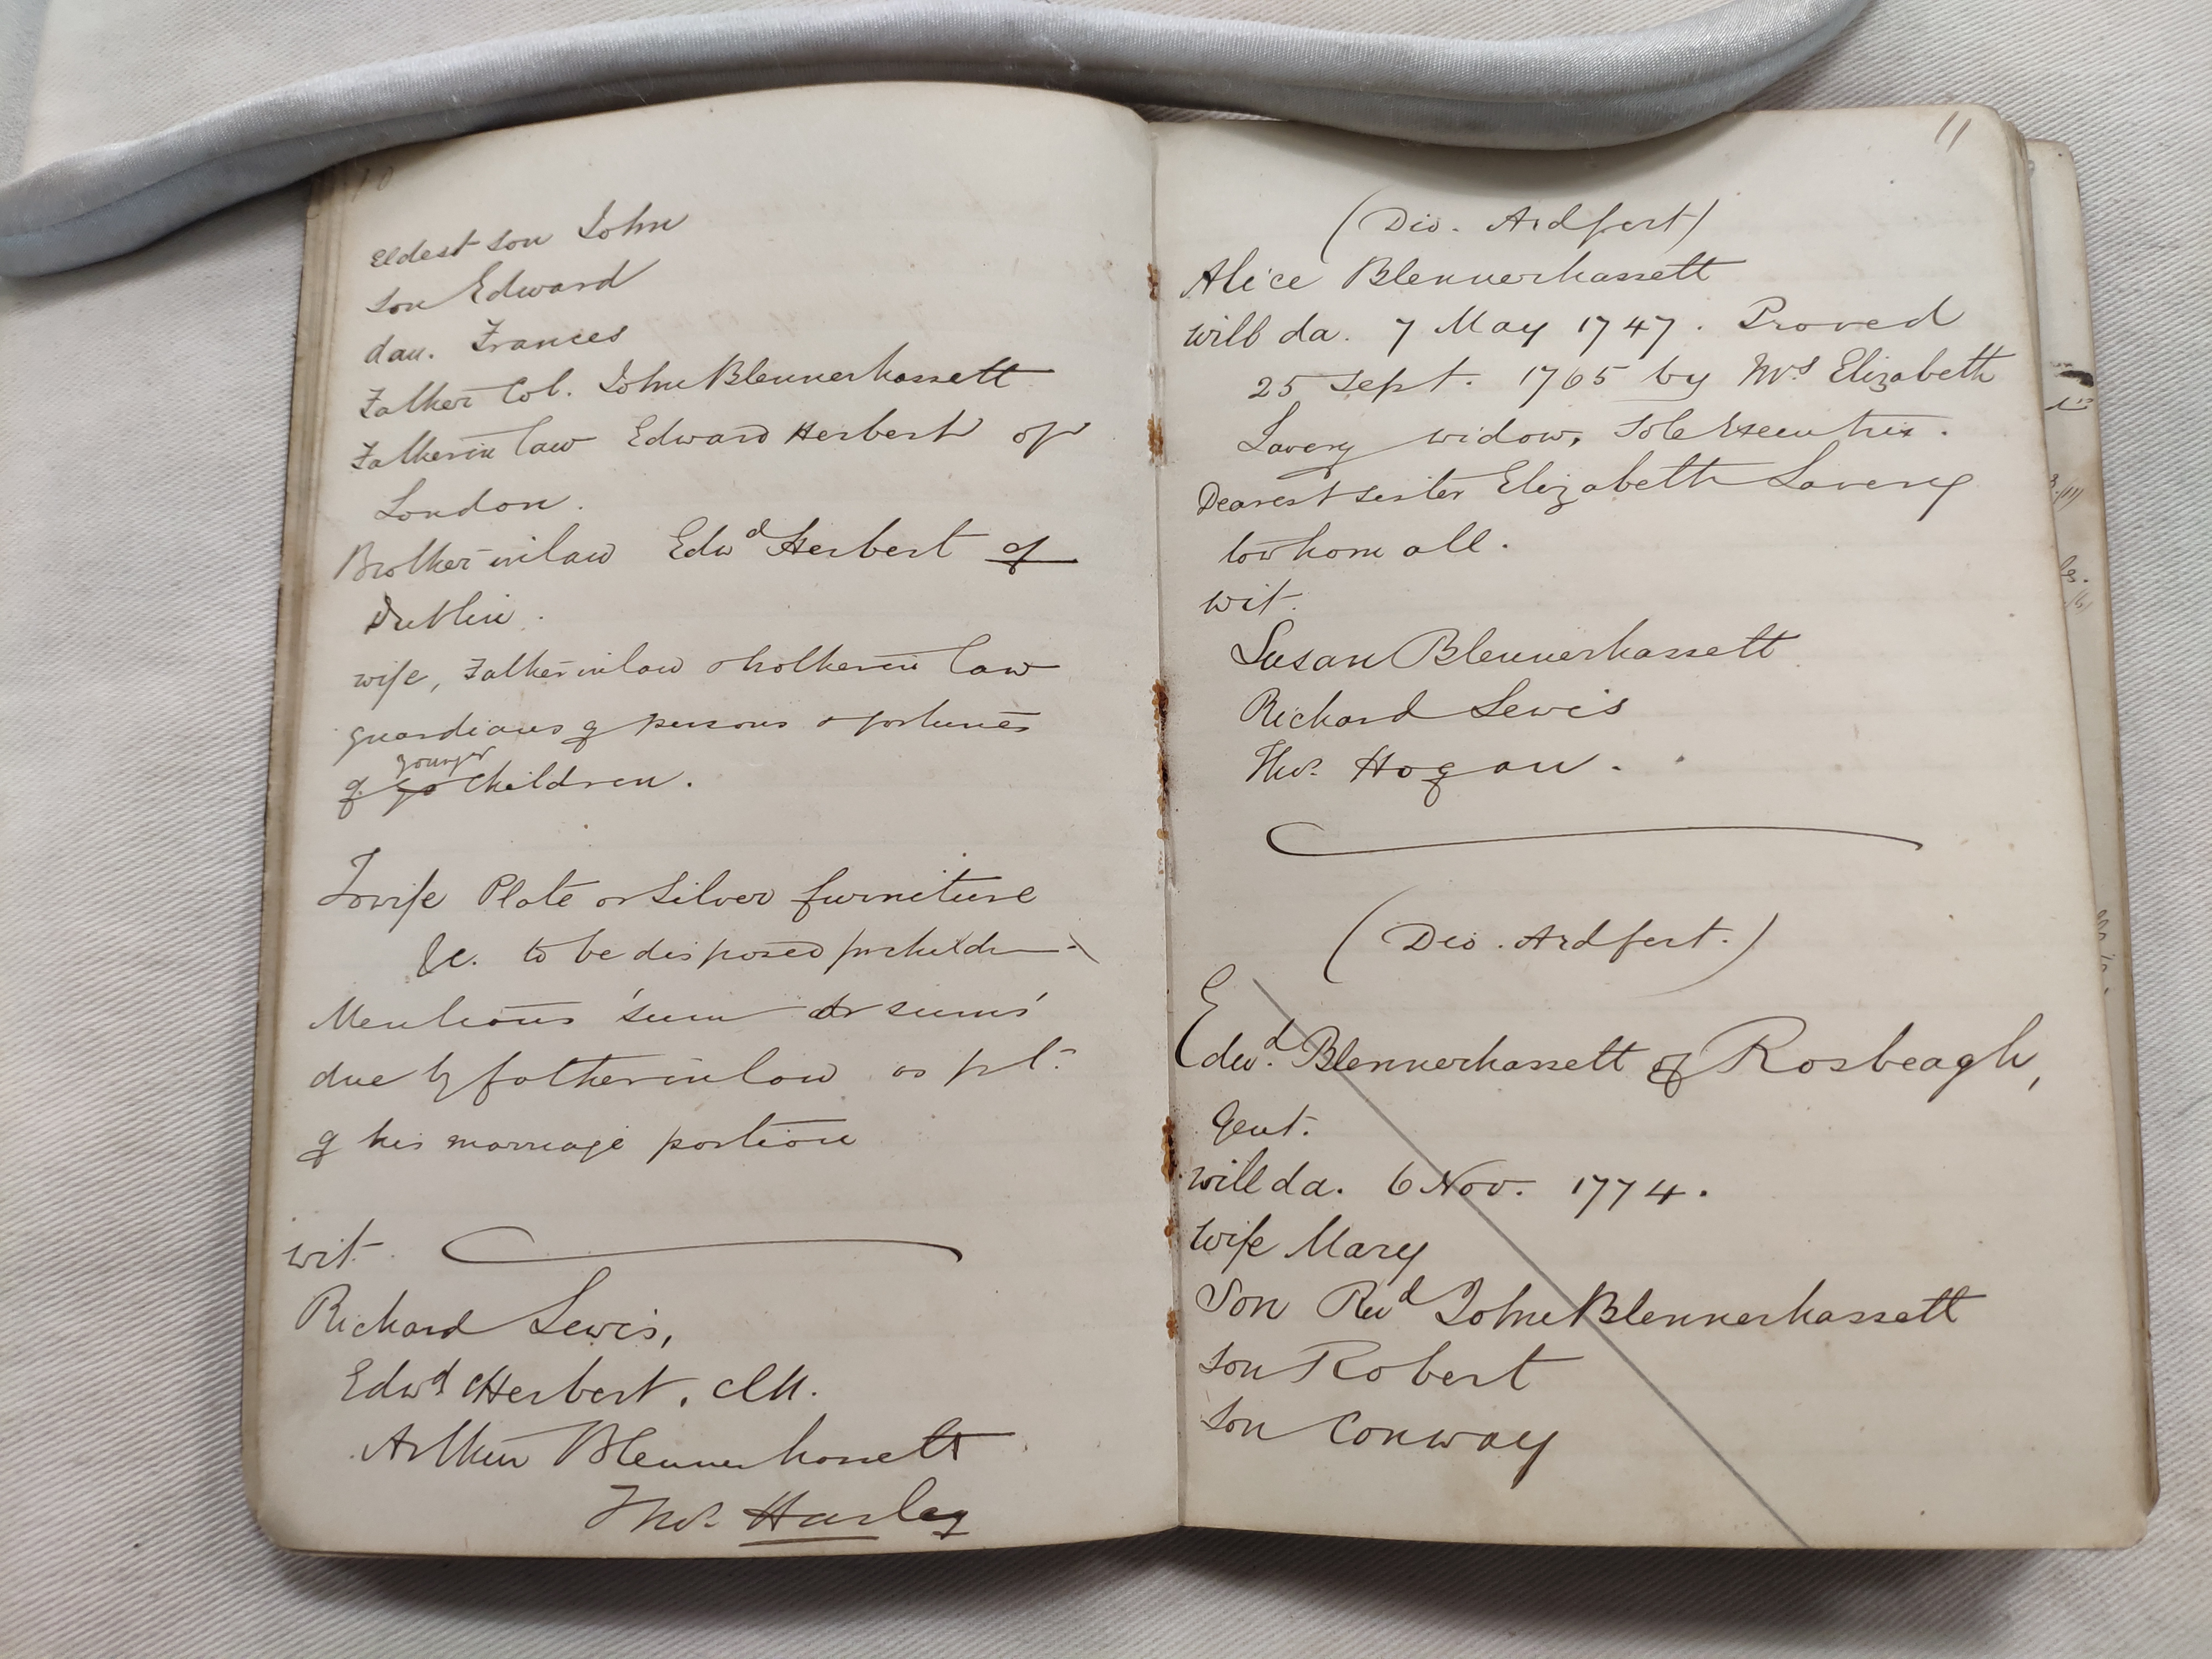 10
Eldest son John
son Edward
dau. Frances
Father Col. John Blennerhassett
Father in law Edward Herbert of
London.
Brother in law Edwd Herbert of
Dublin.
wife, Father in law & brother in law
guardians of persons & fortunes
younger
of children.
To wife Plate or silver furniture
&c. to be disposed for children
Mentions 'sum or sums'
due by father in law as pt.
of his marriage portion
wit.
Richard Lewis,
Edwd Herbert, clk.
Arthur Blennerhassett
Thos. Harley
11
(Dio. Ardfert)
Alice Blennerhassett
will da. 7 May 1747. Proved
25 Sept. 1765 by Mrs Elizabeth
Lavery widow, Sole Executrix.
Dearest sister Elizabeth Lavery
to whom all.
wit.
Susan Blennerhassett
Richard Lewis
Thos. Hogan.
(Dio. Ardfert.)
Edwd. Blennerhassett of Rosbeagh,
Gent.
will da. 6 Nov. 1774.
Wife Mary
Son Revd John Blennerhassett
son Robert
son Conway